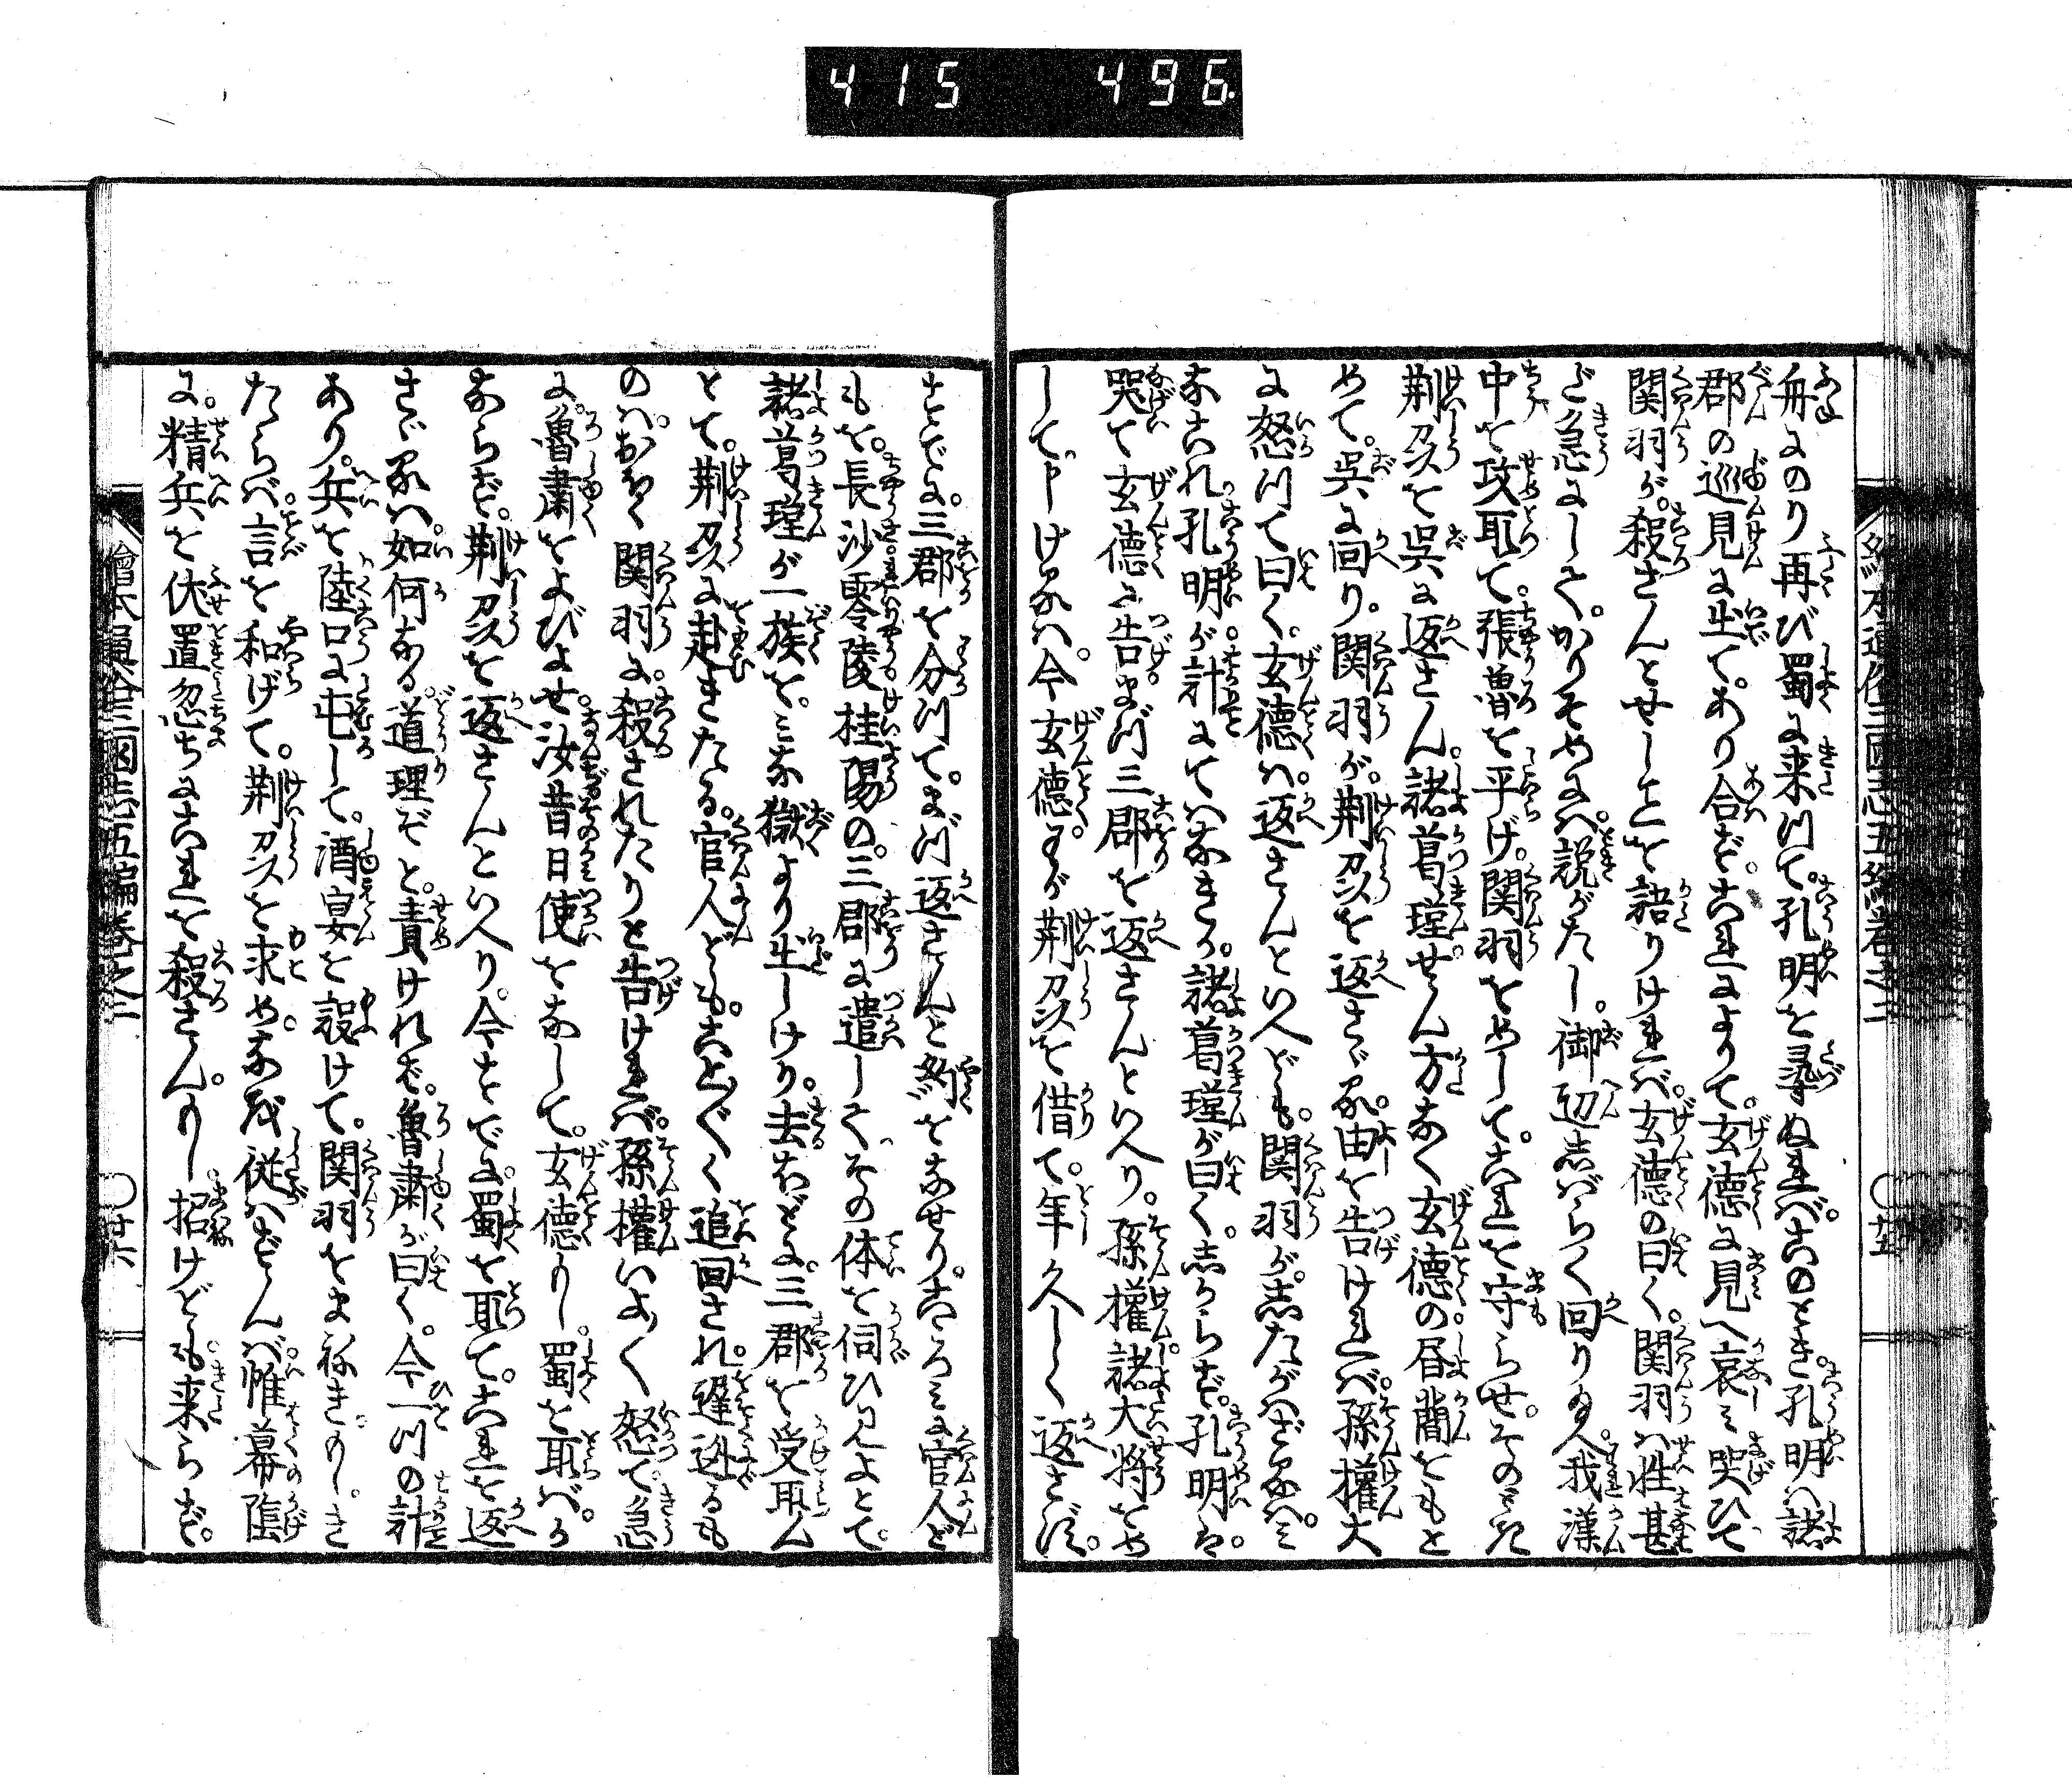 415 496
舟にのり再び蜀に来川て。孔明を尋ぬれバ。このとき。孔明ハ諸
郡の巡見に出て。あり合ず。これによりて。玄徳に見へ哀ミ哭ひて
関羽が。殺さんとせしことを語りけれバ。玄徳の曰く。関羽ハ性甚
だ急にして。かりそめにハ。説がたし。御辺しばらく回り給へ。我漢
中を攻取て。張魯を平げ。関羽をめして。これを守らせ。そのとき
荆州を呉に返さん。諸葛瑾。せん方なく玄徳の。昏簡をもと
めて。呉に回り。関羽が。荆州を返さゞる。由を告けれバ。孫權大
に怒川て曰く。玄徳ハ。返さんといへども。関羽が。したがハざるハ。ミ
なこれ。孔明が。計にてハなきか。諸葛瑾が曰く。しからず。孔明も。
哭て玄徳に告。まづ三郡を返さんといへり。孫權。諸大將をや
して。申けるハ。今。玄徳。わが荆州を借て。年久しく返さず。
すでに。三郡を分川て。まづ返さんと約をなせり。こゝろミに官人ど
もを。長沙。零陵。桂陽の。三郡に遣して。その体を伺ひ見よとて。
諸葛瑾が一族を。ミな獄より出しけり。去ほどに。三郡を受取ん
とて。荆州に赴きたる。官人ども。こと〴〵く追回され。遅迯るも
のハ。おほく関羽に。殺されたりと告けれバ。孫權いよ〳〵怒て。急
に。魯肅をよびよせ。汝昔日使をなして。玄徳もし。蜀を取バ。か
ならず。荆州を返さんといへり。今すでに。蜀を取て。これを返
さゞるハ。如何なる。道理ぞと。責けれバ。魯肅が曰く。今一川の計
あり。兵を陸口に屯して。酒宴を設けて。関羽をまねき。もし。き
たらバ。言を和げて。荆州を求め。もし従ハずんバ。帷幕の陰
に。精兵を伏置忽ちにこれを殺さん。もし。招けども。来らず。
繪本通俗三國志五編巻之二
廿六